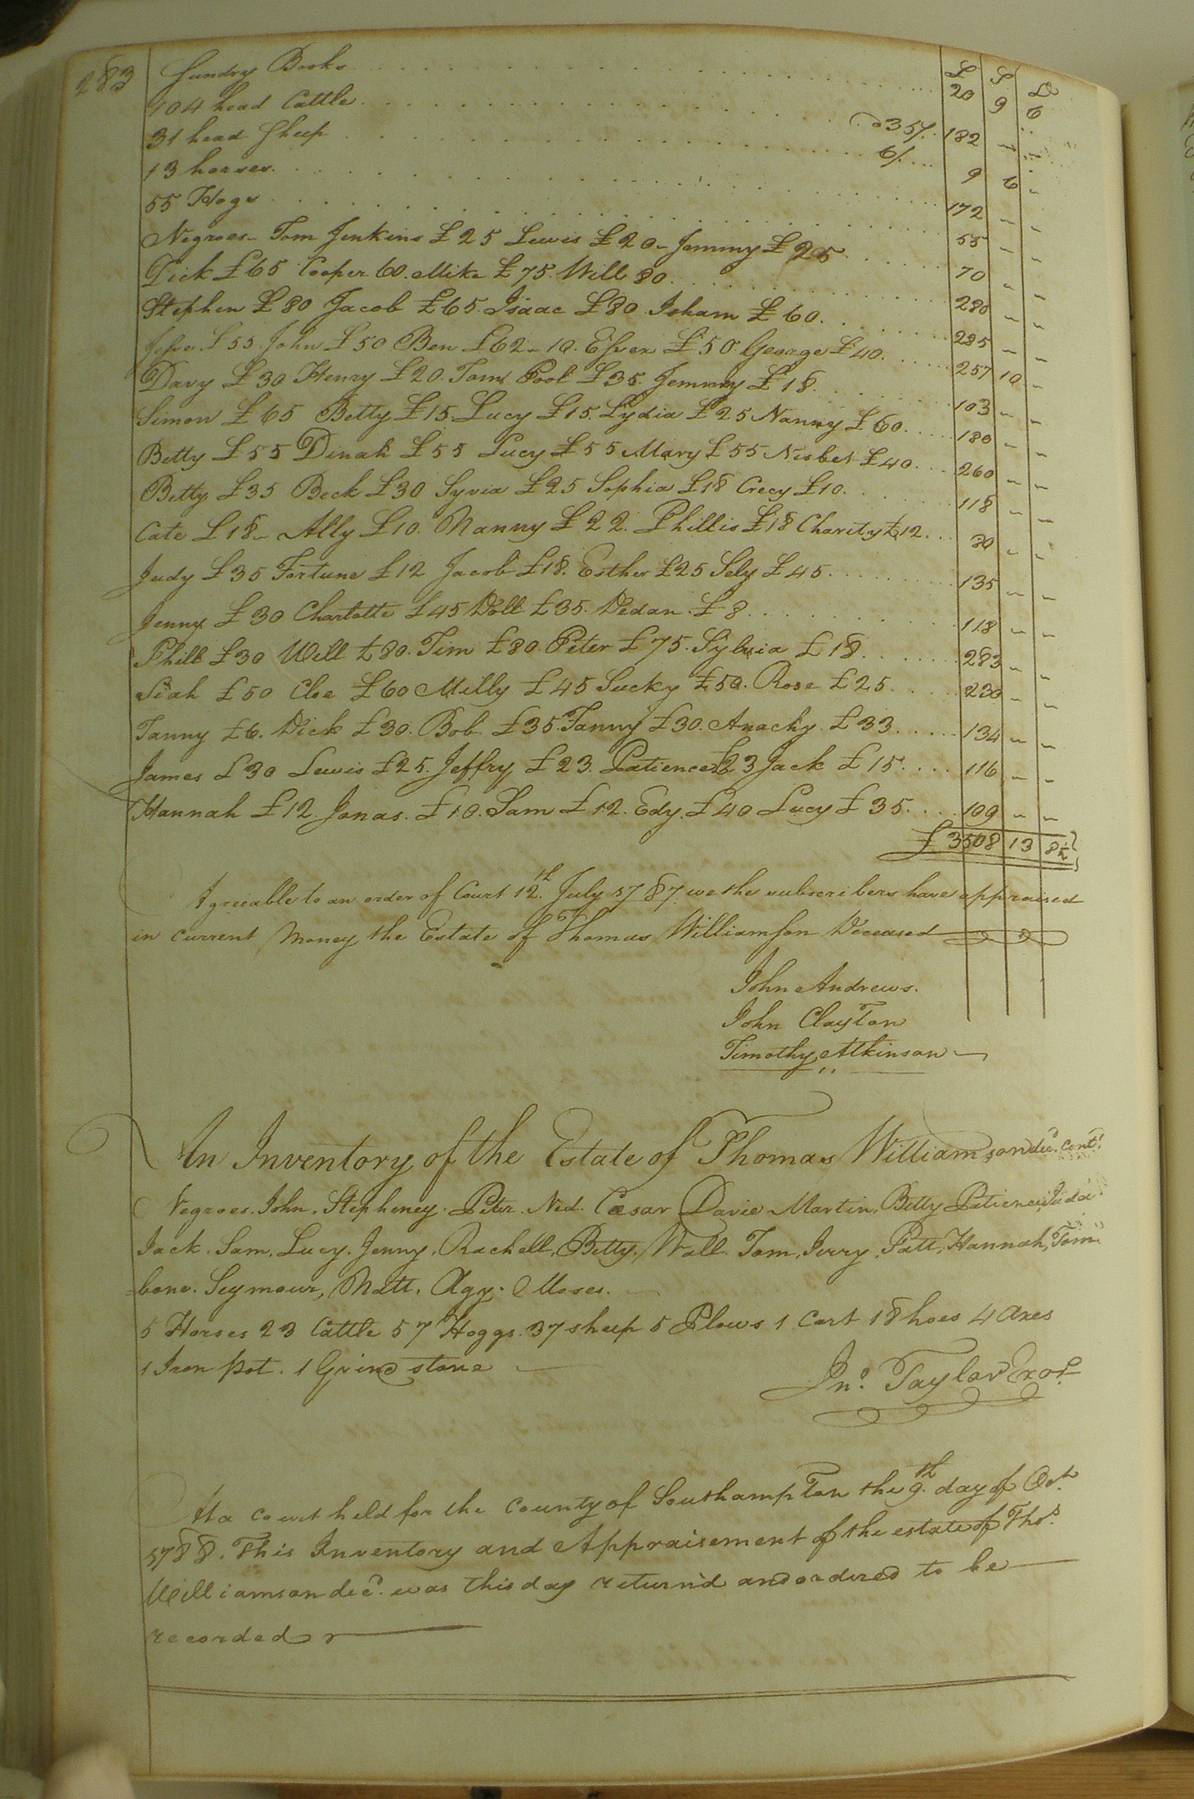 283
£ S D
Sundry Books 20 9 6
104 head Cattle @ 35/. 182 - -
31 head Sheep 6/. 9 6 -
13 horses. 172 - -
55 Hogs 55 - -
Negroes - Tom Jenkins £25 Lewis £20 - Jemmy £25 70 - -
Dick £65 Cooper 60. Mike £75. Will 80. 280 - -
Stephen £80 Jacob £65. Isaac £80. Isham £60. 285 - -
£55. John £50 Ben £62 - 10. Essex £50. George £40. 257 10 -
Davy £30 Henry £20. Tom Pool £35. Jemmy £18. 103 - -
Simon £65 Betty £15. Lucy £15 Lydia £25 Nanny £60. 180 - -
Betty £55 Dinah £55 Lucy £55 Mary £55 Nisbet £40. 260 - -
Betty £35 Beck £30 Syvia £25 Sophia £18 Crecy £10. 118 - -
Cate £18 - Ally £10. Nanny £22. Phillis £18 Charity £12. - -
Judy £35 Fortune £12 Jacob £18. Esther £25 Sely £45. 135 - -
Jenny £30 Charlotte £45 Doll £35. Dedan £8. 118 - -
Phill £30 Will £80. Tim £80. Peter £75. Sylvia £18. 283 - -
Siah £50 Cloe £60 Milly £45 Sucky £50. Rose £25. 230 - -
Tanny £6. Dick £30. Bob £35. Tanny £30. Anachy. £33. 134 - -
James £30 Lewis £25. Jeffry £23. Patience £23 Jack £15. 116 - -
Hannah £12. Jonas. £10. Sam £12. Edy. £40 Lucy £35. 109 - -
£3508 13 8½
Agreeable to an order of Court 12th. July 1787. we the subscribers have appraised
in current Money the Estate of Thomas Williamson Deceased
John Andrews.
John Clayton
Timothy Atkinson
An Inventory of the Estate of Thomas Williamson decd. contd.
Negroes. John, Stepheney. Peter. Ned. Cæsar Davie Martin, Betty Patience,
Jack. Sam, Lucy. Jenny, Rachell, Betty, Wall. Tom, Jerry, Patt, Hannah, Tom
bone. Seymour, Matt. Agy. Moses.
5 Horses 23 Cattle 57 Hoggs. 37 sheep 5 Plows 1 Cart 18 hoes 4 Axes
1 Iron pot. 1 Grind stone
Jno. Taylor Exor.
At a court held for the county of Southampton the 9th. day of Octr.
1788. This Inventory and Appraisement of the estate of Thos.
Williamson decd. was this day returnd and ordered to be
recorded